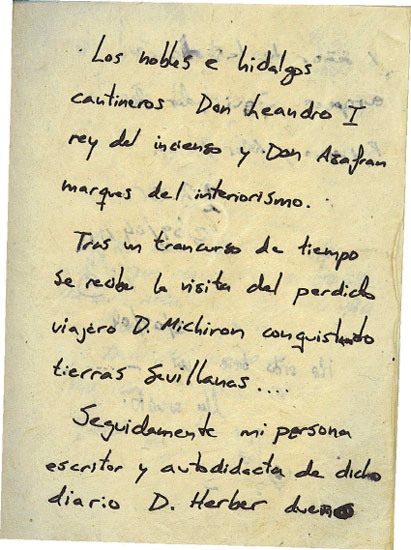 Los nobles e hidalgos
cantineros Don Leandro I
rey del incienso y Don Asafran
marques del interiorismo.
Tras un trancurso de tiempo
se recibe la visita del perdido
viajero D. Michiron conquistando
tierras Sevillanas....
Seguidamente mi persona
escritor y autodidacta de dicho
diario D. Herber